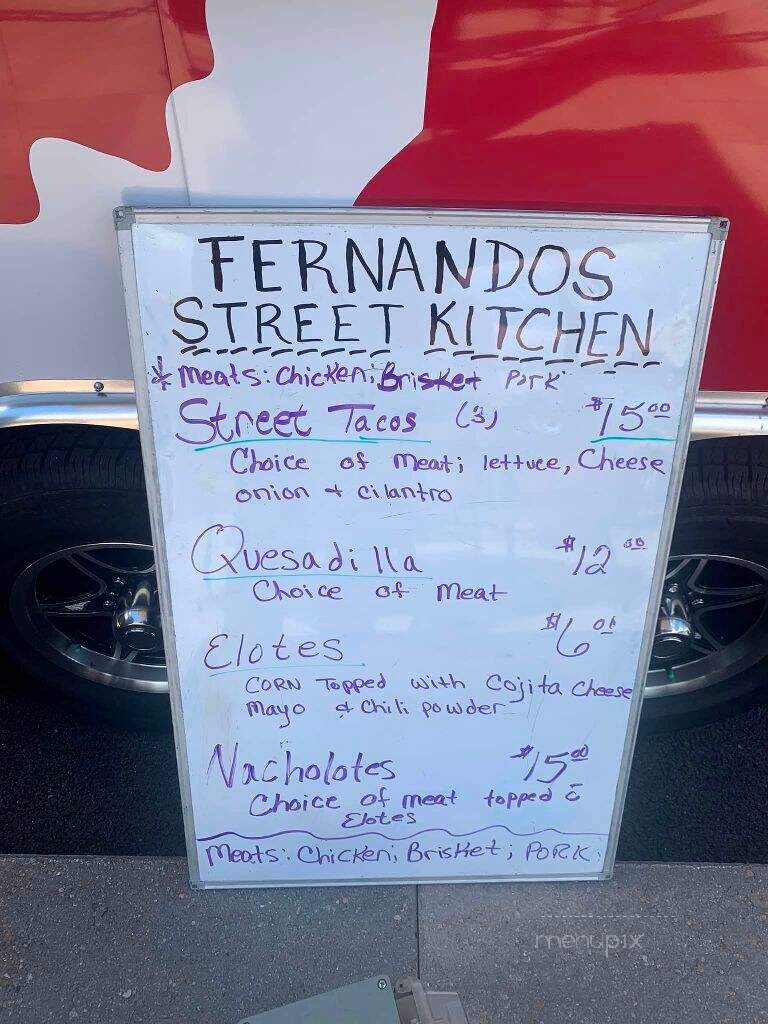 FERNANDOS
STREET KITCHEN
* Meats: Chicken; Brisket Pork
Street Tacos (3) $15.00
Choice of Meat; lettuce, Cheese
onion + cilantro
Quesadilla $12.00
Choice of Meat
Elotes $6.00
CORN Topped with Cojita Cheese
Mayo & Chili powder
Nacholotes $15.00
Choice of meat topped c̄
Elotes
Meats: Chicken; Brisket; PORK
menupix